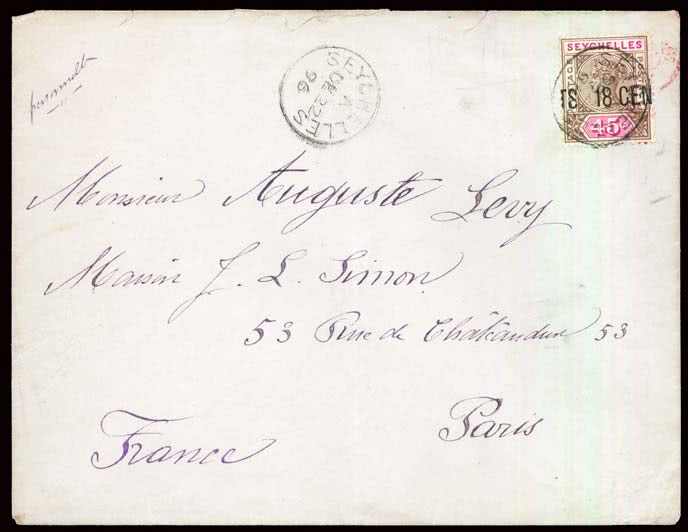 SEYCHELLES
TS 18 CEN
45
SEYCHELLES
A
DE 22
96
Monsieur Auguste Levy
Maison J. L. Simon
53 Rue de Châteaudun 53
Paris
France